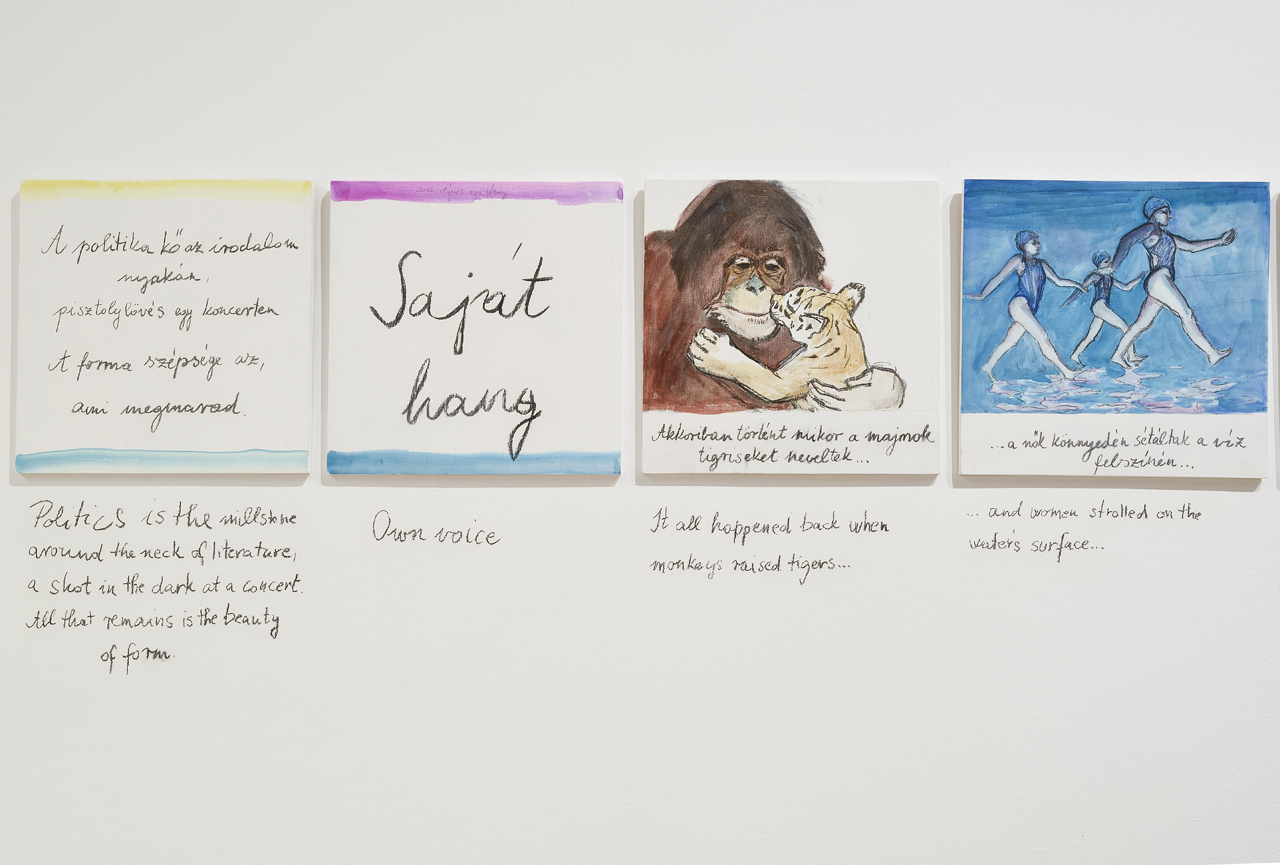 A politika kő az irodalom
nyakán,
pisztolylövés egy koncerten
A forma szépsége az,
ami megmarad.
Politics is the millstone
around the neck of literature,
a shot in the dark at a concert.
All that remains is the beauty
of form.
Saját
hang
Own voice
Akkoriban történt mikor a majmok
tigriseket neveltek...
It all happened back when
monkeys raised tigers...
...a nők könnyedén sétáltak a víz
felszínén...
... and women strolled on the
water's surface...